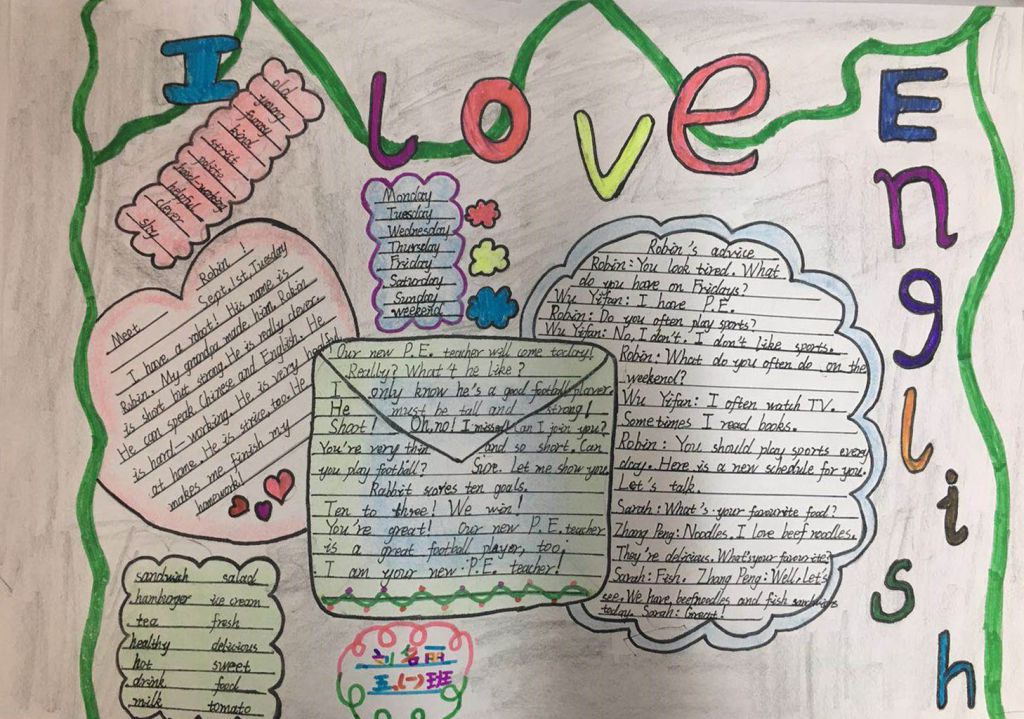 I Love English
old
young
funny
kind
strict
polite
hard-working
helpful
clever
shy
Monday
Tuesday
Wednesday
Thursday
Friday
Saturday
Sunday
weekend
Meet Robin!
Sept. 1st. Tuesday
I have a robot! His name is
Robin. My grandpa made him. Robin
is short but strong. He is really clever.
He can speak Chinese and English. He
is hard-working. He is very helpful
at home. He is strict, too. He
makes me finish my
homework!
Our new P.E. teacher will come today!
Really? What's he like?
I only know he's a good football player.
He must be tall and strong!
Shoot! Oh, no! I missed. Can I join you?
You're very thin and so short. Can
you play football? Sure. Let me show you.
Rabbit saves ten goals.
Ten to three! We win!
You're great! Our new P.E. teacher
is a great football player, too.
I am your new P.E. teacher!
Robin's advice
Robin: You look tired. What
do you have on Fridays?
Wu Yifan: I have P.E.
Robin: Do you often play sports?
Wu Yifan: No, I don't. I don't like sports.
Robin: What do you often do on the
weekend?
Wu Yifan: I often watch TV.
Sometimes I read books.
Robin: You should play sports every
day. Here is a new schedule for you.
Let's talk.
Sarah: What's your favourite food?
Zhang Peng: Noodles. I love beef noodles.
They're delicious. What's your favourite?
Sarah: Fish. Zhang Peng: Well, Let's
see. We have beef noodles and fish sandwiches
today. Sarah: Great!
sandwich salad
hamburger ice cream
tea fresh
healthy delicious
hot sweet
drink food
milk tomato
刘名丽
五.(一)班